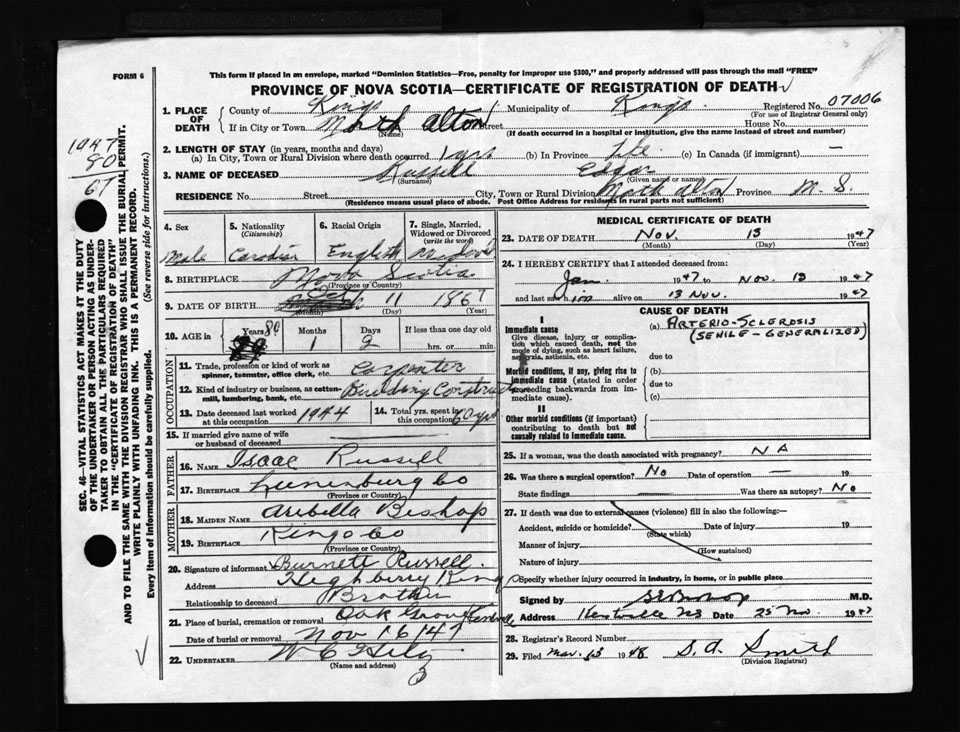 FORM 6
This form if placed in an envelope, marked "Dominion Statistics—Free, penalty for improper use $300," and properly addressed will pass through the mail "FREE"
PROVINCE OF NOVA SCOTIA—CERTIFICATE OF REGISTRATION OF DEATH
1. PLACE OF DEATH County of Kings Municipality of Kings Registered No. 07006
(For use of Registrar General only)
If in City or Town North Alton Street House No.
(Name) (If death occurred in a hospital or institution, give the name instead of street and number)
2. LENGTH OF STAY (in years, months and days)
(a) In City, Town or Rural Division where death occurred 1 yrs (b) In Province Life (c) In Canada (if immigrant) —
3. NAME OF DECEASED Russell Edgar
(Surname) (Given name or names)
RESIDENCE No. Street City, Town or Rural Division North Alton Province N. S.
(Residence means usual place of abode. Post Office Address for residents in rural parts not sufficient)
4. Sex 5. Nationality (Citizenship) 6. Racial Origin 7. Single, Married, Widowed or Divorced (write the word)
Male Canadian English Widowed
8. BIRTHPLACE Nova Scotia
(Province or Country)
9. DATE OF BIRTH Oct 11 1867
(Month) (Day) (Year)
10. AGE in Years 80 Months 1 Days 2 If less than one day old hrs. or min.
OCCUPATION
11. Trade, profession or kind of work as spinner, teamster, office clerk, etc. Carpenter
12. Kind of industry or business, as cotton-mill, lumbering, bank, etc. Building Construction
13. Date deceased last worked at this occupation 1944 14. Total yrs. spent in this occupation 60 yrs
15. If married give name of wife or husband of deceased
FATHER
16. NAME Isaac Russell
17. BIRTHPLACE Lunenburg Co
(Province or Country)
MOTHER
18. MAIDEN NAME Aribella Bishop
19. BIRTHPLACE Kings Co
(Province or Country)
20. Signature of informant Burnett Russell
Address Highberry Kings
Relationship to deceased Brother
21. Place of burial, cremation or removal Oak Grove Kentville
Date of burial or removal Nov 16/47
22. UNDERTAKER W C
(Name and address)
MEDICAL CERTIFICATE OF DEATH
23. DATE OF DEATH Nov. 13 1947
(Month) (Day) (Year)
24. I HEREBY CERTIFY that I attended deceased from:
Jan. 1947 to Nov. 13 1947
and last saw him alive on 13 Nov. 1947
CAUSE OF DEATH
I
Immediate cause
Give disease, injury or complication which caused death, not the mode of dying, such as heart failure, asphyxia, asthenia, etc.
(a) ARTERIO-SCLEROSIS
(SENILE - GENERALIZED)
due to
Morbid conditions, if any, giving rise to immediate cause (stated in order proceeding backwards from immediate cause).
(b)
due to
(c)
II
Other morbid conditions (if important) contributing to death but not causally related to immediate cause.
25. If a woman, was the death associated with pregnancy? NA
26. Was there a surgical operation? No Date of operation — 19
State findings — Was there an autopsy? No
27. If death was due to external causes (violence) fill in also the following:—
Accident, suicide or homicide? Date of injury 19
(State which)
Manner of injury
(How sustained)
Nature of injury
Specify whether injury occurred in industry, in home, or in public place
Signed by M.D.
Address Kentville NS Date 25 Nov. 1947
28. Registrar's Record Number
29. Filed Mar. 1948 S. A. Smith
(Division Registrar)
1947
80
67
SEC. 46—VITAL STATISTICS ACT MAKES IT THE DUTY
OF THE UNDERTAKER OR PERSON ACTING AS UNDER-
TAKER TO OBTAIN ALL THE PARTICULARS REQUIRED
IN THE "CERTIFICATE OF REGISTRATION OF DEATH"
AND TO FILE THE SAME WITH THE DIVISION REGISTRAR WHO SHALL ISSUE THE BURIAL PERMIT.
WRITE PLAINLY WITH UNFADING INK. THIS IS A PERMANENT RECORD.
Every item of Information should be carefully supplied. (See reverse side for instructions.)